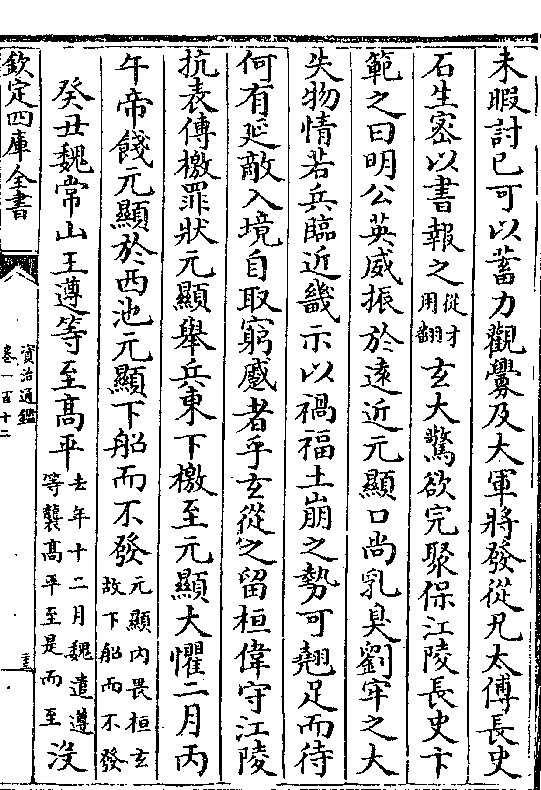 未暇討已可以蓄力觀釁及大軍將發從兄太傅長史
石生密以書報之從才用翻玄大驚欲完聚保江陵長史卞
範之曰明公英威振於逺近元顯口尚乳臭劉牢之大
失物情若兵臨近畿示以禍福土崩之勢可翹足而待
何有延敵入境自取窮蹙者乎玄從之留桓偉守江陵
抗表傳檄罪狀元顯舉兵東下檄至元顯大懼二月丙
午帝餞元顯於西池元顯下船而不發元顯内畏桓玄故下船而不發
癸丑魏常山王遵等至髙平去年十二月魏遣遵等襲髙平至是而至没
欽定四庫全書
資治通鑑
卷一百十二